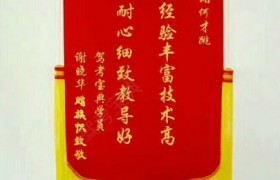 何才跳
经验丰富技术高
耐心细致教导好
驾考宝典学员
谢晓华 赠旗帜致敬